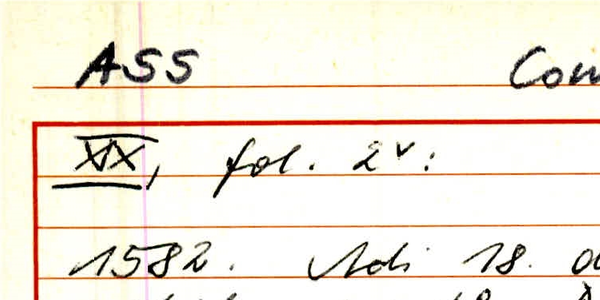 ASS Com
XIX, fol. 2v:
1582. Adi 18. d